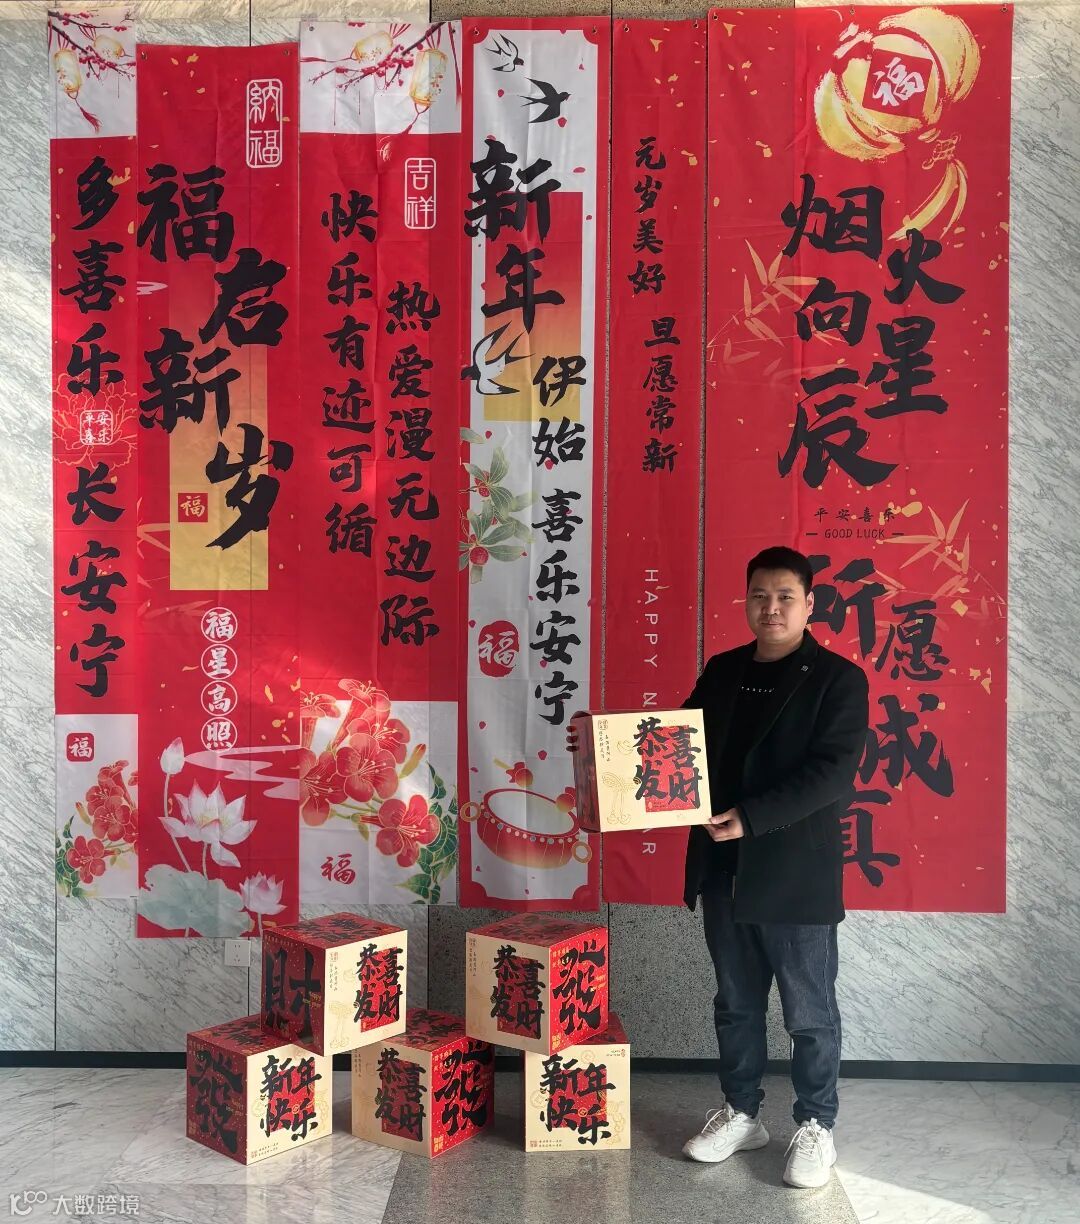 多喜乐
平安喜乐
长安宁
福
纳福
福启新岁
福
福星高照
吉祥
快乐有迹可循
热爱漫无边际
福
新年
伊始
喜乐安宁
福
元岁美好
旦愿常新
HAPPY N
AR
福
烟火
向星辰
平安喜乐
GOOD LUCK
所愿
成真
恭喜
发财
財
恭喜
发财
恭喜
发财
發
發
新年
快乐
恭喜
发财
發
新年
快乐
大数跨境